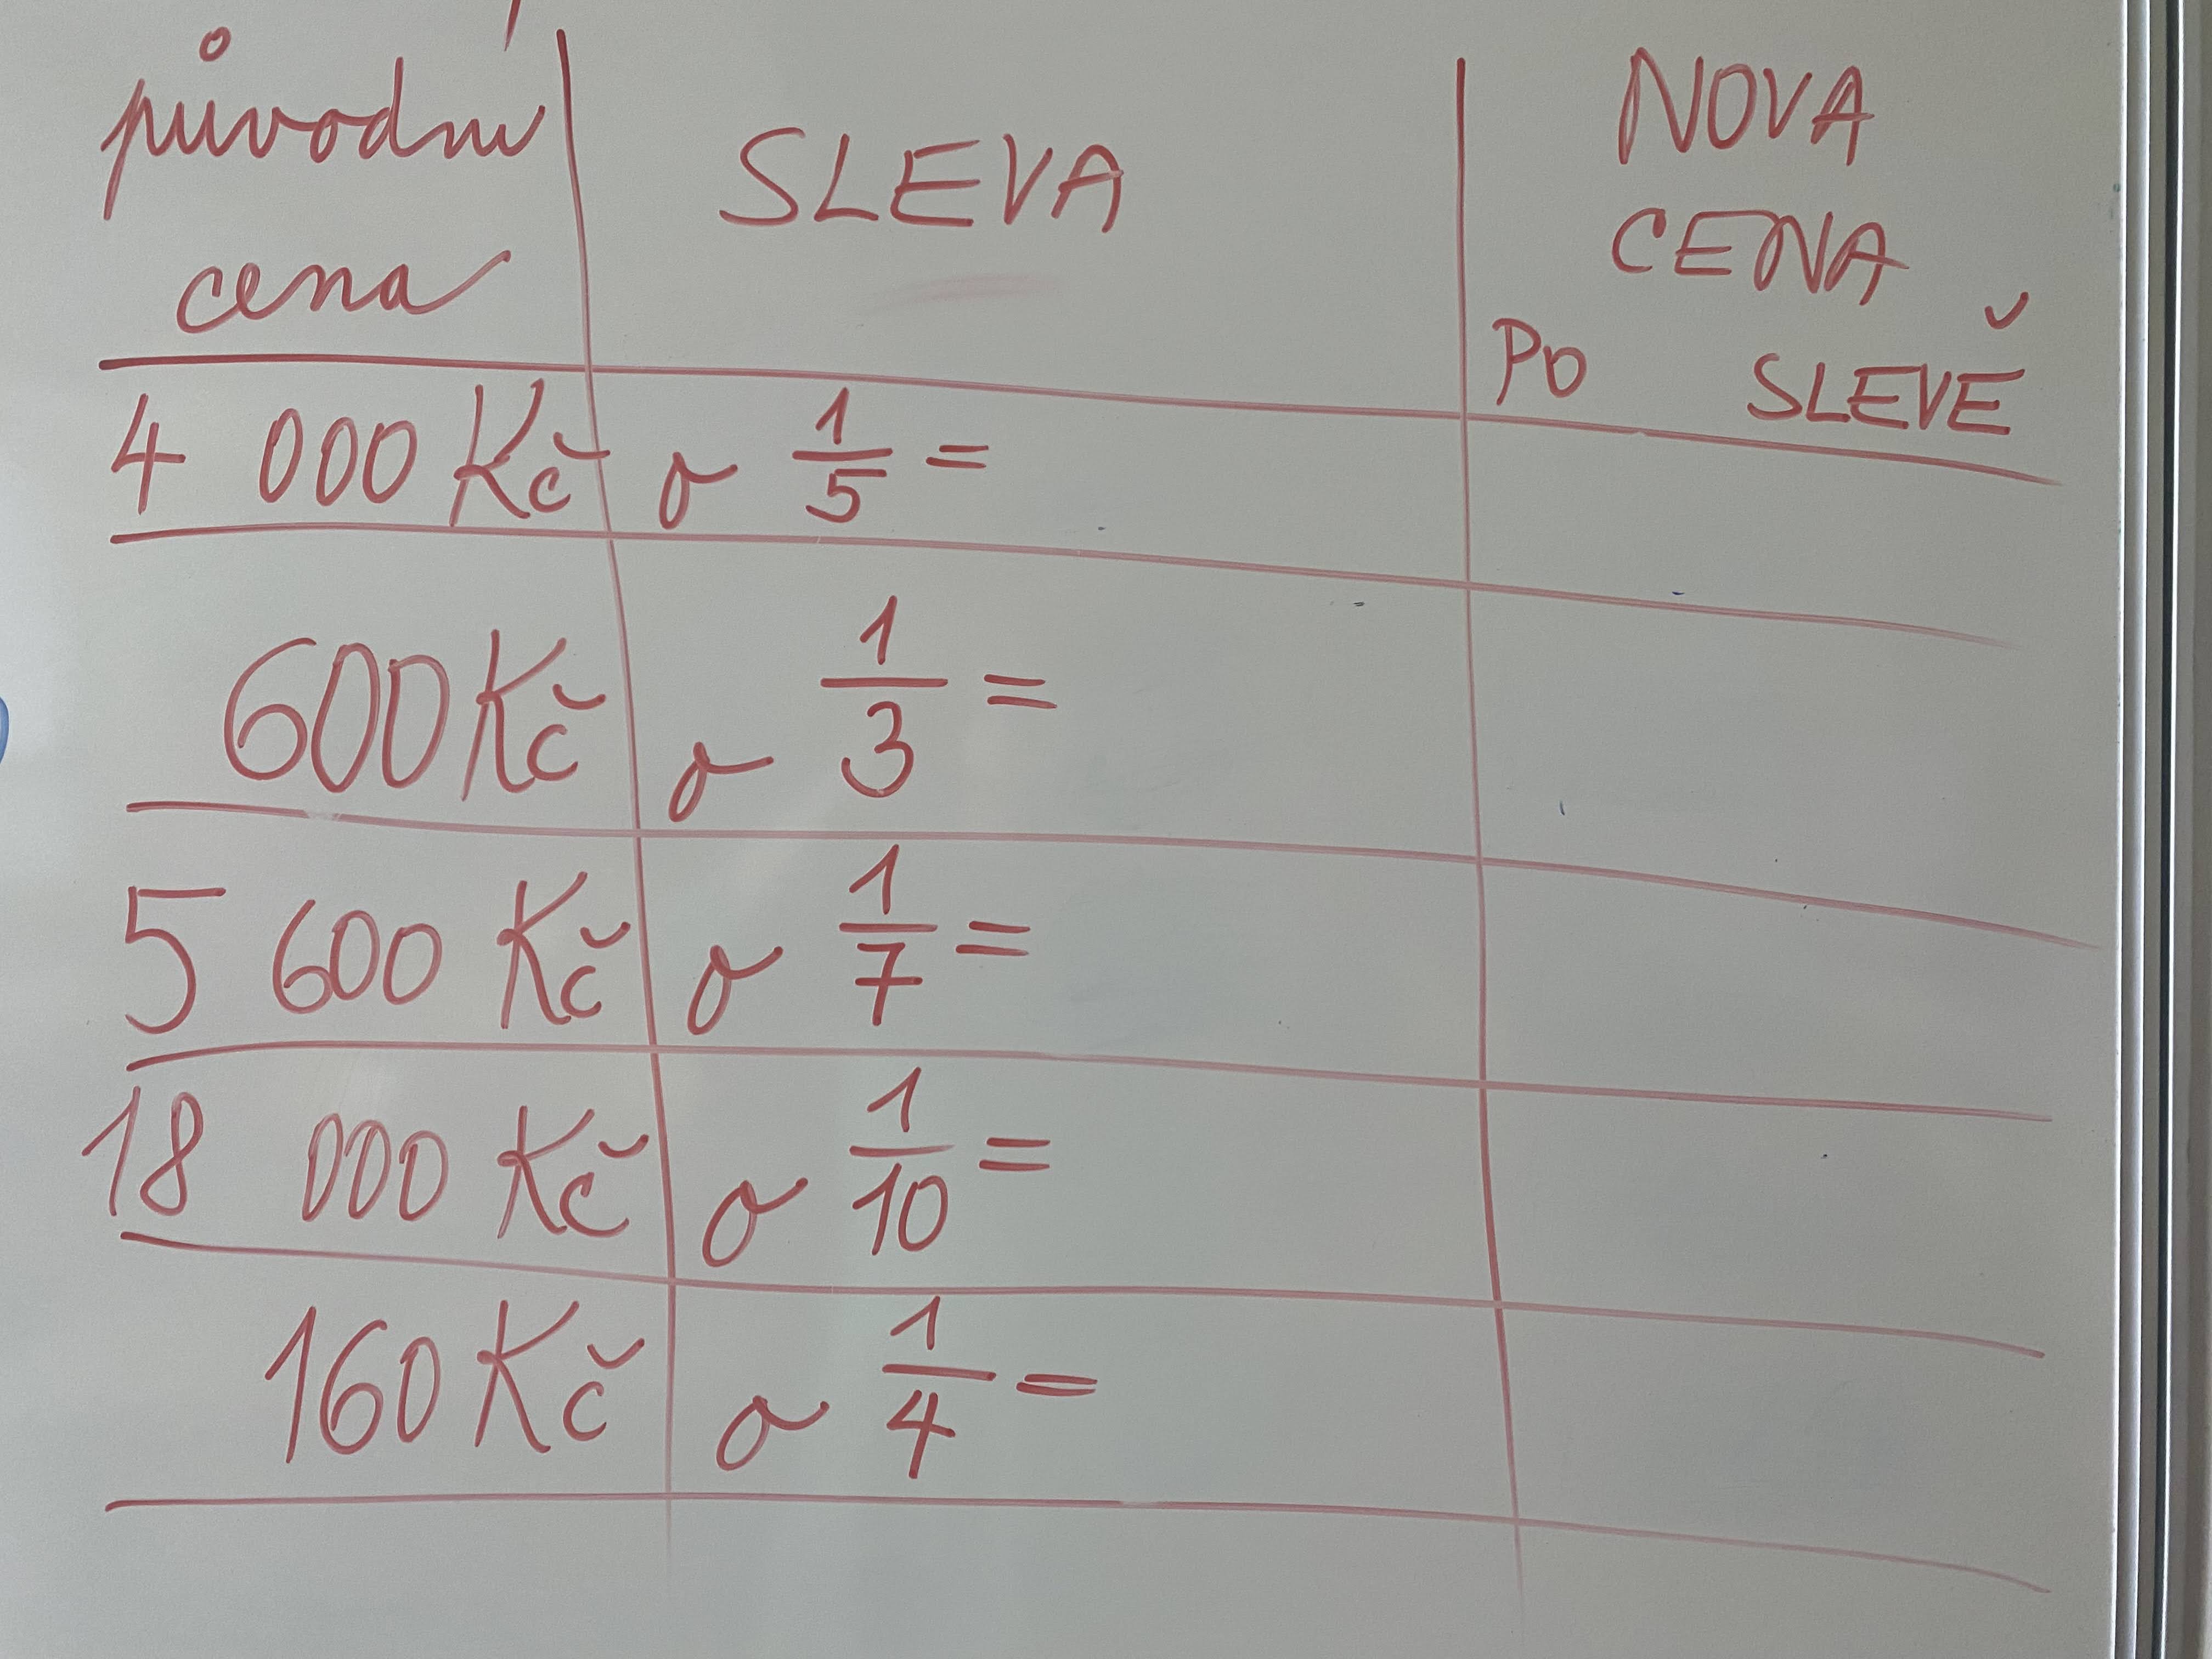 původní
cena
SLEVA
NOVA
CENA
PO SLEVĚ
4 000 Kč o 1/5 =
600 Kč o 1/3 =
5 600 Kč o 1/7 =
18 000 Kč o 1/10 =
160 Kč o 1/4 =